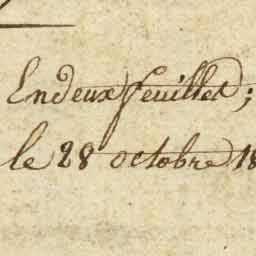 En deux feuillet;
le 28 octobre 18